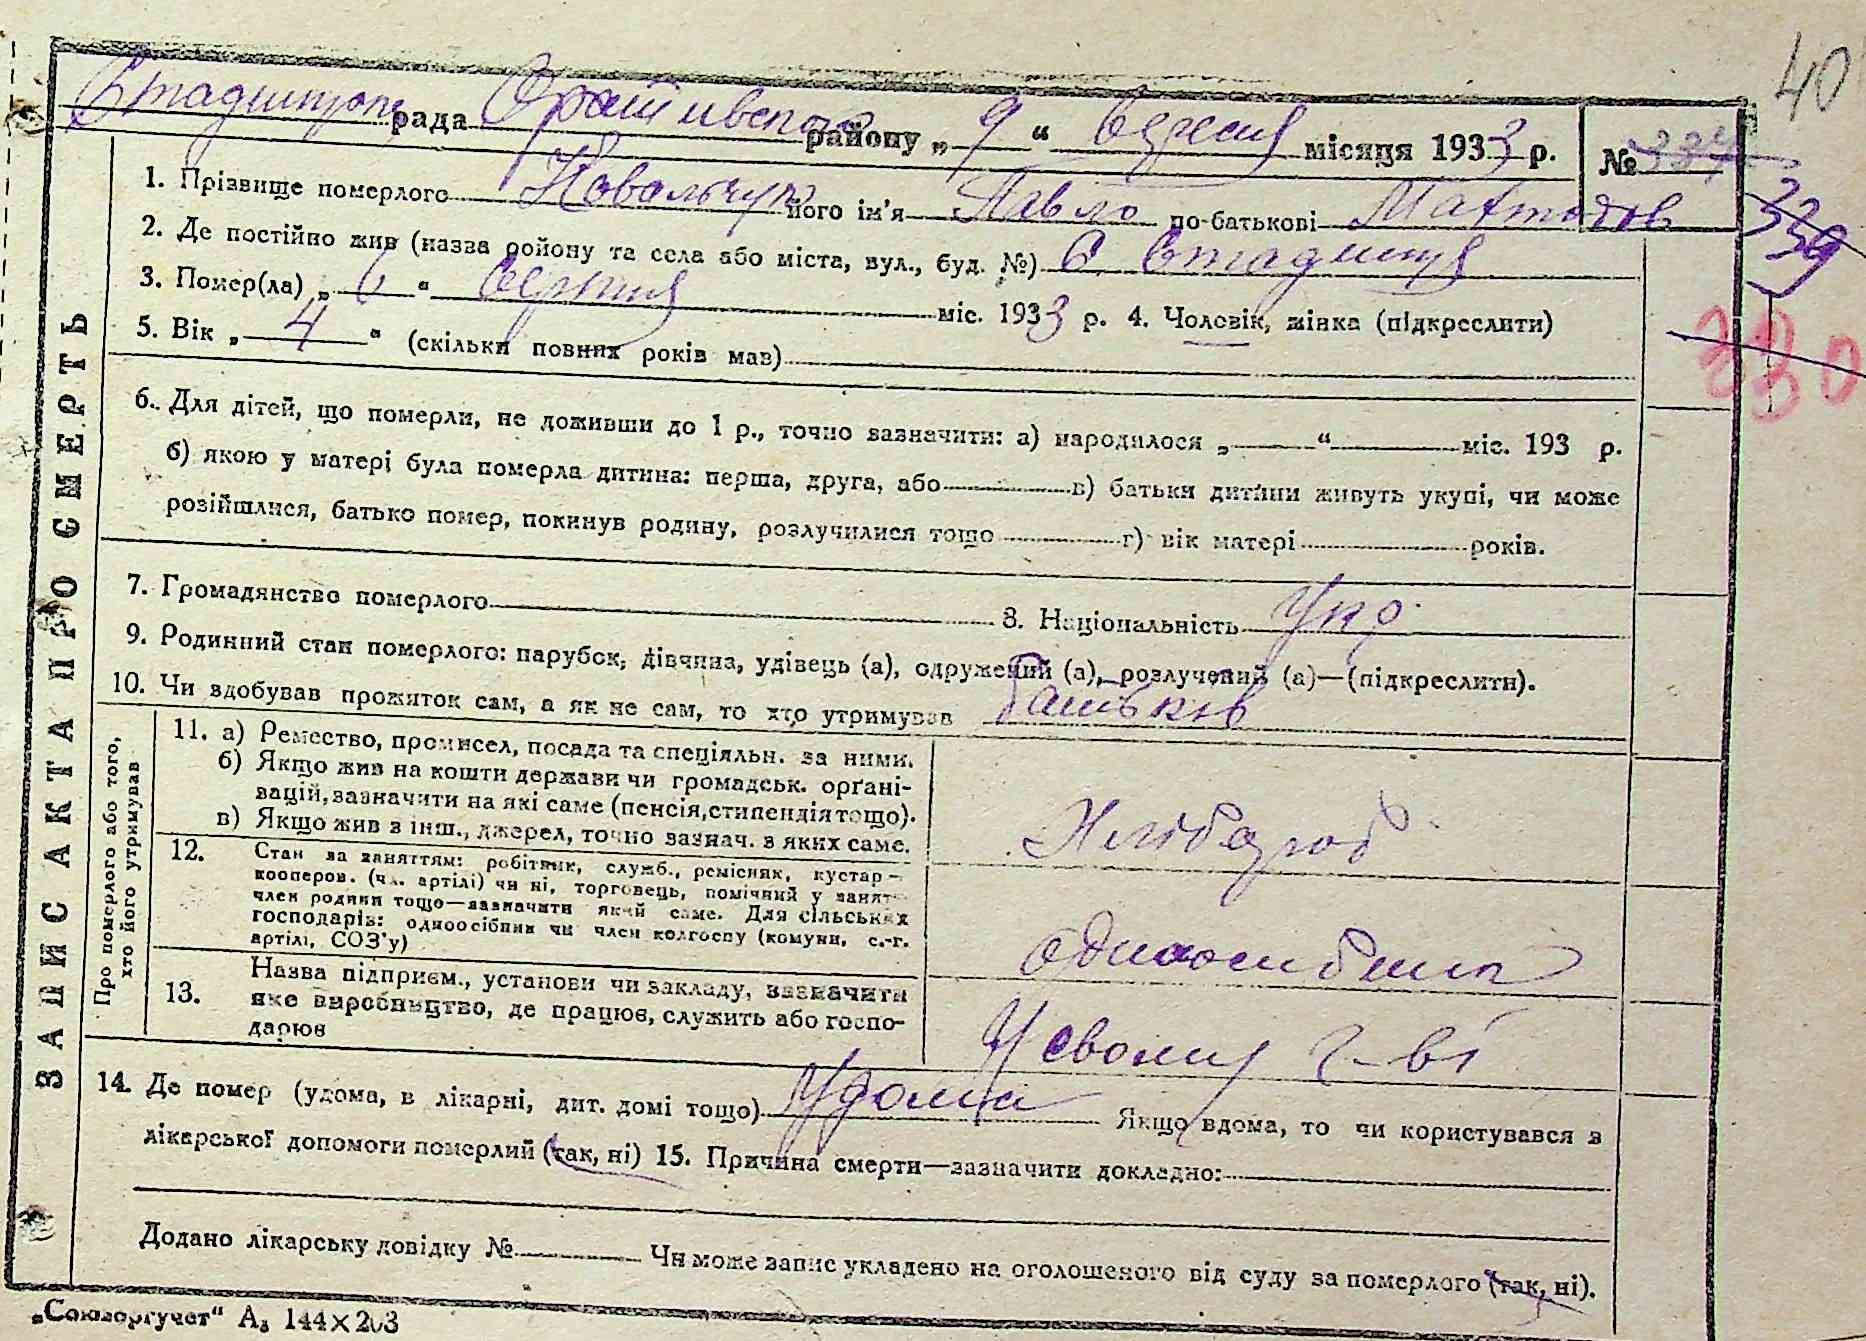 40
Стадницька рада Оратівського району „9“ вересня місяця 1933 р. № 334
339
330
ЗАПИС АКТА ПРО СМЕРТЬ
1. Прізвище померлого Ковальчук його ім'я Павло по-батькові
2. Де постійно жив (назва району та села або міста, вул., буд. №) с. Стадниця
3. Помер(ла) „6“ серпня міс. 1933 р. 4. Чоловік, жінка (підкреслити)
5. Вік „4“ (скільки повних років мав)
6. Для дітей, що померли, не доживши до 1 р., точно зазначити: а) народилося „ “ міс. 193 р.
б) якою у матері була померла дитина: перша, друга, або в) батьки дитини живуть укупі, чи може
розійшлися, батько помер, покинув родину, розлучилися тощо г) вік матері років.
7. Громадянство померлого 8. Національність Укр
9. Родинний стан померлого: парубок, дівчина, удівець (а), одружений (а), розлучений (а)—(підкреслити).
10. Чи здобував прожиток сам, а як не сам, то хто утримував батьків
Про померлого або того,
хто його утримував
11. а) Ремество, промисел, посада та спеціяльн. за ними.
б) Якщо жив на кошти держави чи громадськ. орґані-
зацій, зазначити на які саме (пенсія, стипендія тощо).
в) Якщо жив з інш., джерел, точно зазнач. з яких саме.
Хлібороб
12. Стан за заняттям: робітник, служб., ремісник, кустар—
кооперов. (чл. артілі) чи ні, торговець, помічний у занят-
член родини тощо—зазначити який саме. Для сільських
господарів: одноосібник чи член колгоспу (комуни, с.-г.
артілі, СОЗ'у)
одноосибник
13. Назва підприєм., установи чи закладу, зазначити
яке виробництво, де працює, служить або госпо-
дарює
У своїм г-ві
14. Де помер (удома, в лікарні, дит. домі тощо) Удома Якщо вдома, то чи користувався з
лікарської допомоги померлий (так, ні) 15. Причина смерти—зазначити докладно:
Додано лікарську довідку № Чи може запис укладено на оголошеного від суду за померлого (так, ні).
„Союзоргучет“ А₃ 144×203